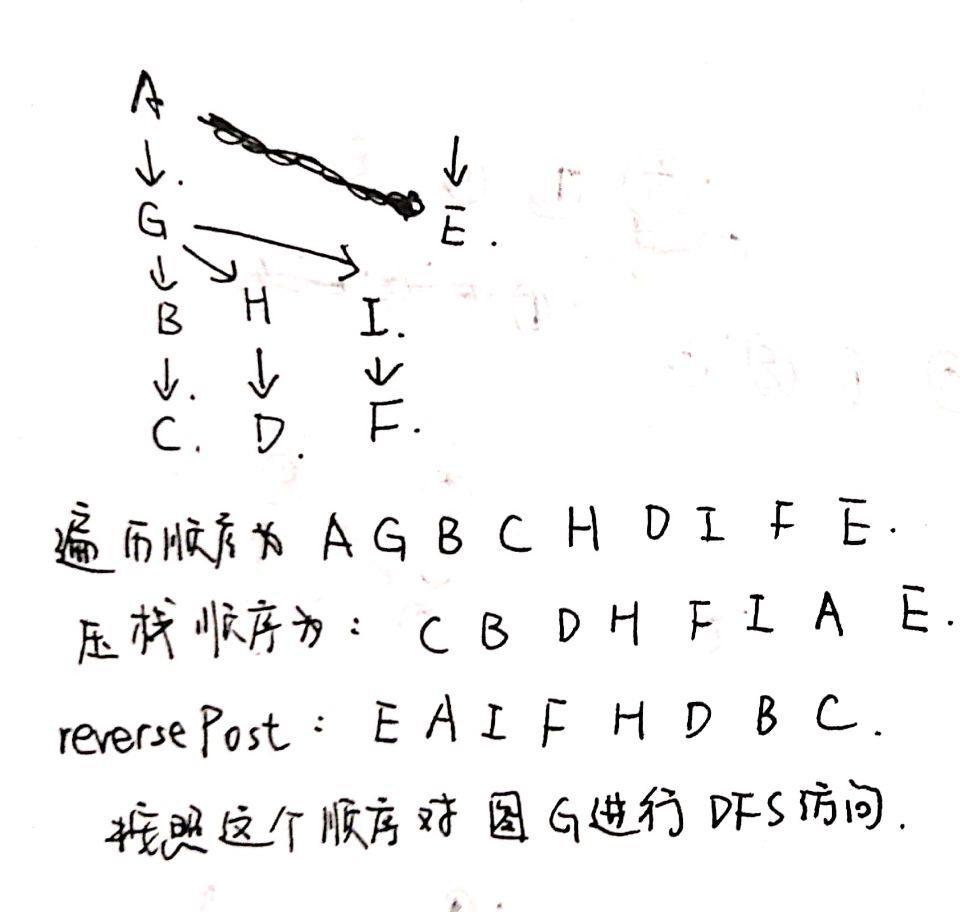 A
G E.
B H I.
C. D. F.
遍历顺序为 A G B C H D I F E.
压栈顺序为: C B D H F I A E.
reversePost: E A I F H D B C.
按照这个顺序对图G进行DFS访问.